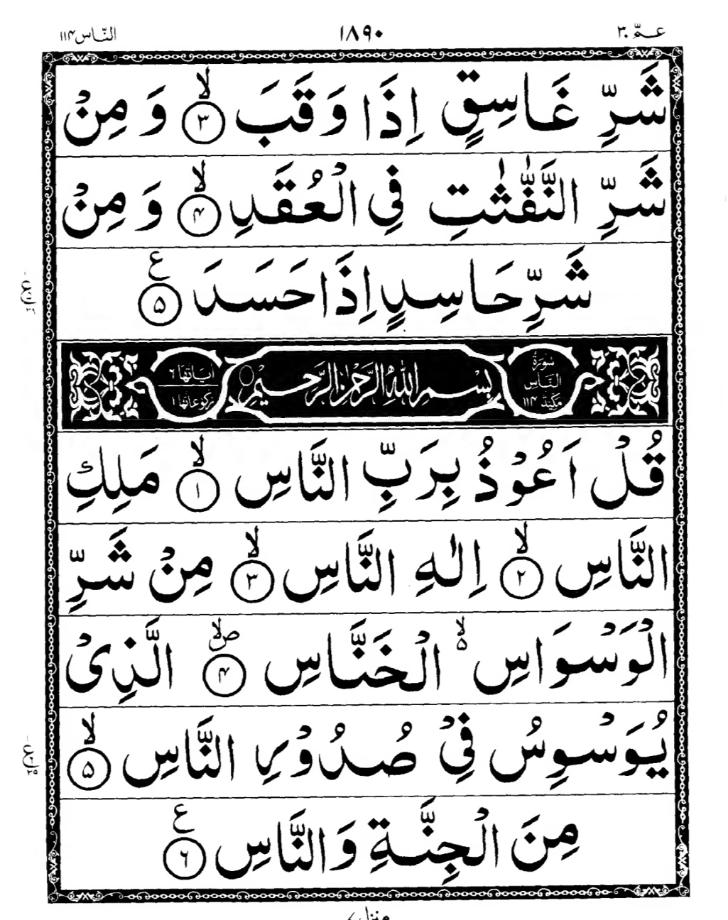 عـمّ ٣٠ ١٨٩٠ النّاس ١١٤
شَرِّ غَاسِقٍ اِذَا وَقَبَ ۙ﴿۳﴾ وَ مِنْ
شَرِّ النَّفّٰثٰتِ فِی الْعُقَدِ ۙ﴿۴﴾ وَ مِنْ
شَرِّ حَاسِدٍ اِذَا حَسَدَ ﴿۵﴾ ع
سُوْرَةُ النَّاسِ مَكِّيَّة ١١٤
بِسْمِ اللّٰهِ الرَّحْمٰنِ الرَّحِيْمِ
اٰيَاتُهَا ٦ رُكُوْعَاتُهَا ١
قُلْ اَعُوْذُ بِرَبِّ النَّاسِ ۙ﴿۱﴾ مَلِكِ
النَّاسِ ۙ﴿۲﴾ اِلٰهِ النَّاسِ ۙ﴿۳﴾ مِنْ شَرِّ
الْوَسْوَاسِ ۙ۵ الْخَنَّاسِ ﴿۴﴾ صلا الَّذِیْ
یُوَسْوِسُ فِیْ صُدُوْرِ النَّاسِ ۙ﴿۵﴾
مِنَ الْجِنَّةِ وَالنَّاسِ ﴿۶﴾ ع
منزل ٧